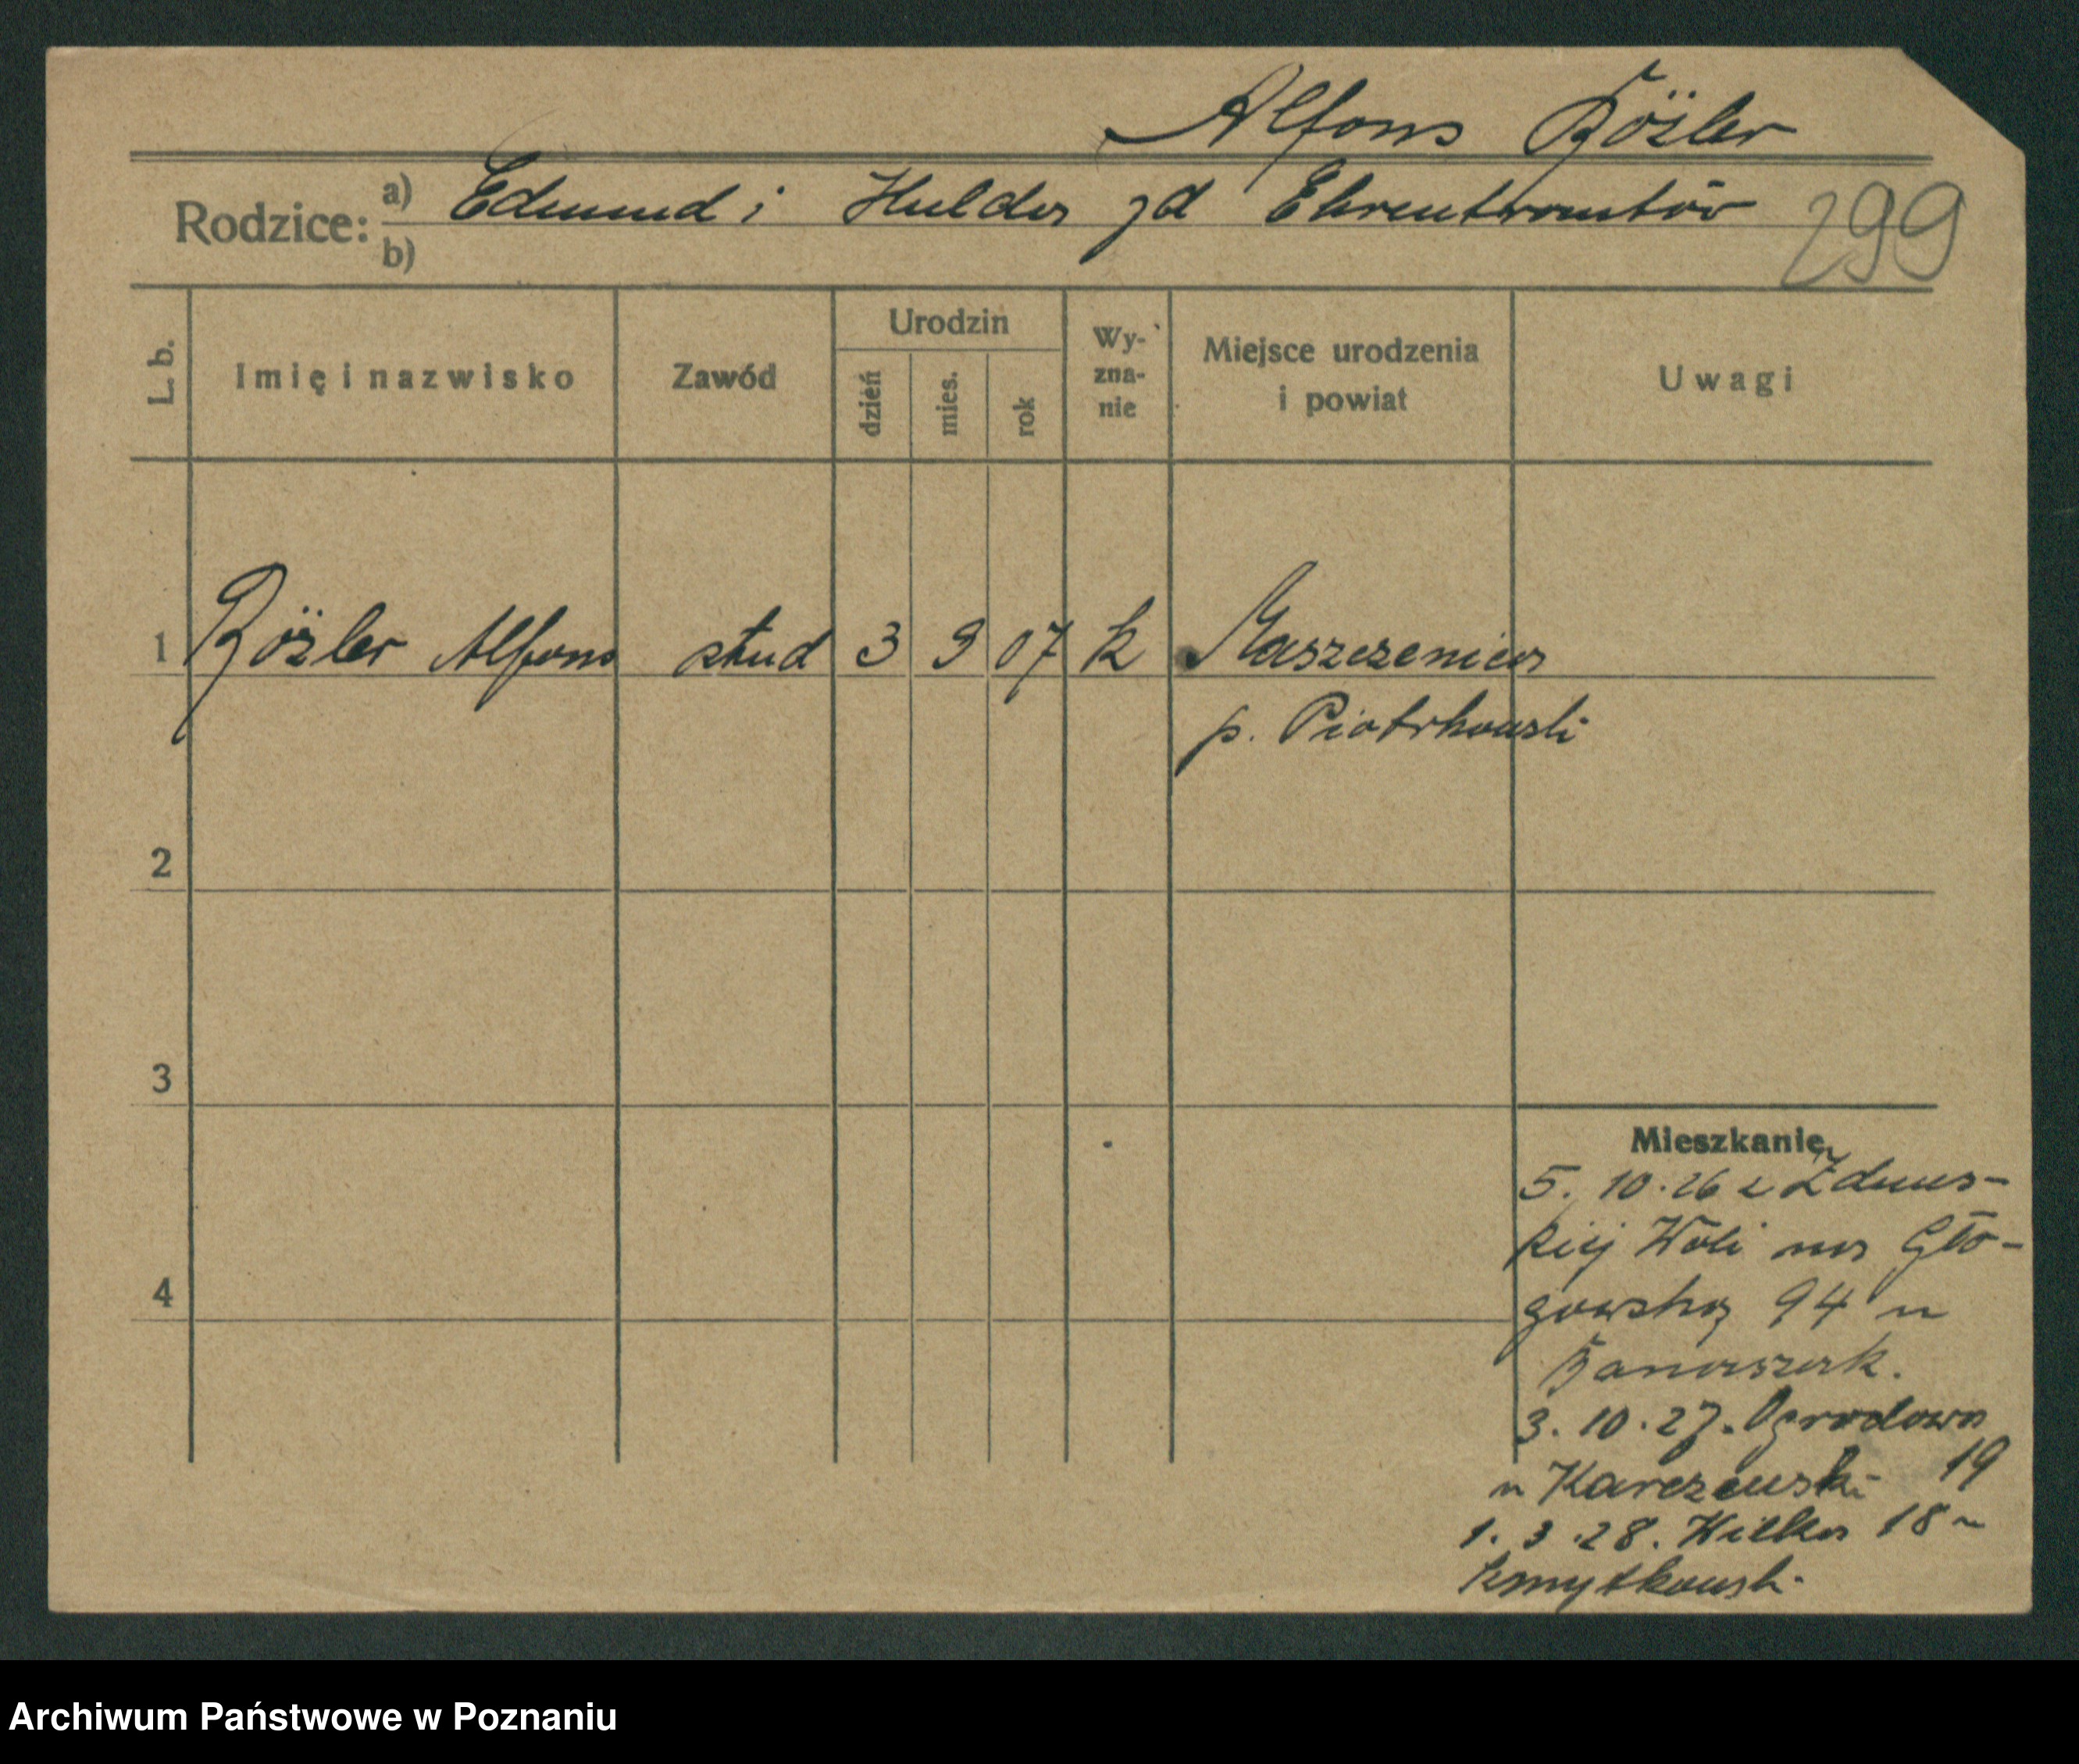 Alfons Böżler
Rodzice: a) Edmund i Hulda zd Ehrentrautów
b)
299
L. b. Imię i nazwisko Zawód Urodzin dzień mies. rok Wy-zna-nie Miejsce urodzenia i powiat Uwagi
1 Böżler Alfons stud 3 9 07 k Maszczenica
p. Piotrkowski
2
3
Mieszkanie
5. 10.26 z Zduńs-
kiej Woli na Gło-
4
gowską 94 u
Banaszak.
3. 10. 27. Ogrodowa
19
u Karczewski
1. 3. 28. Wielka 18 u
Kmytkowski
Archiwum Państwowe w Poznaniu